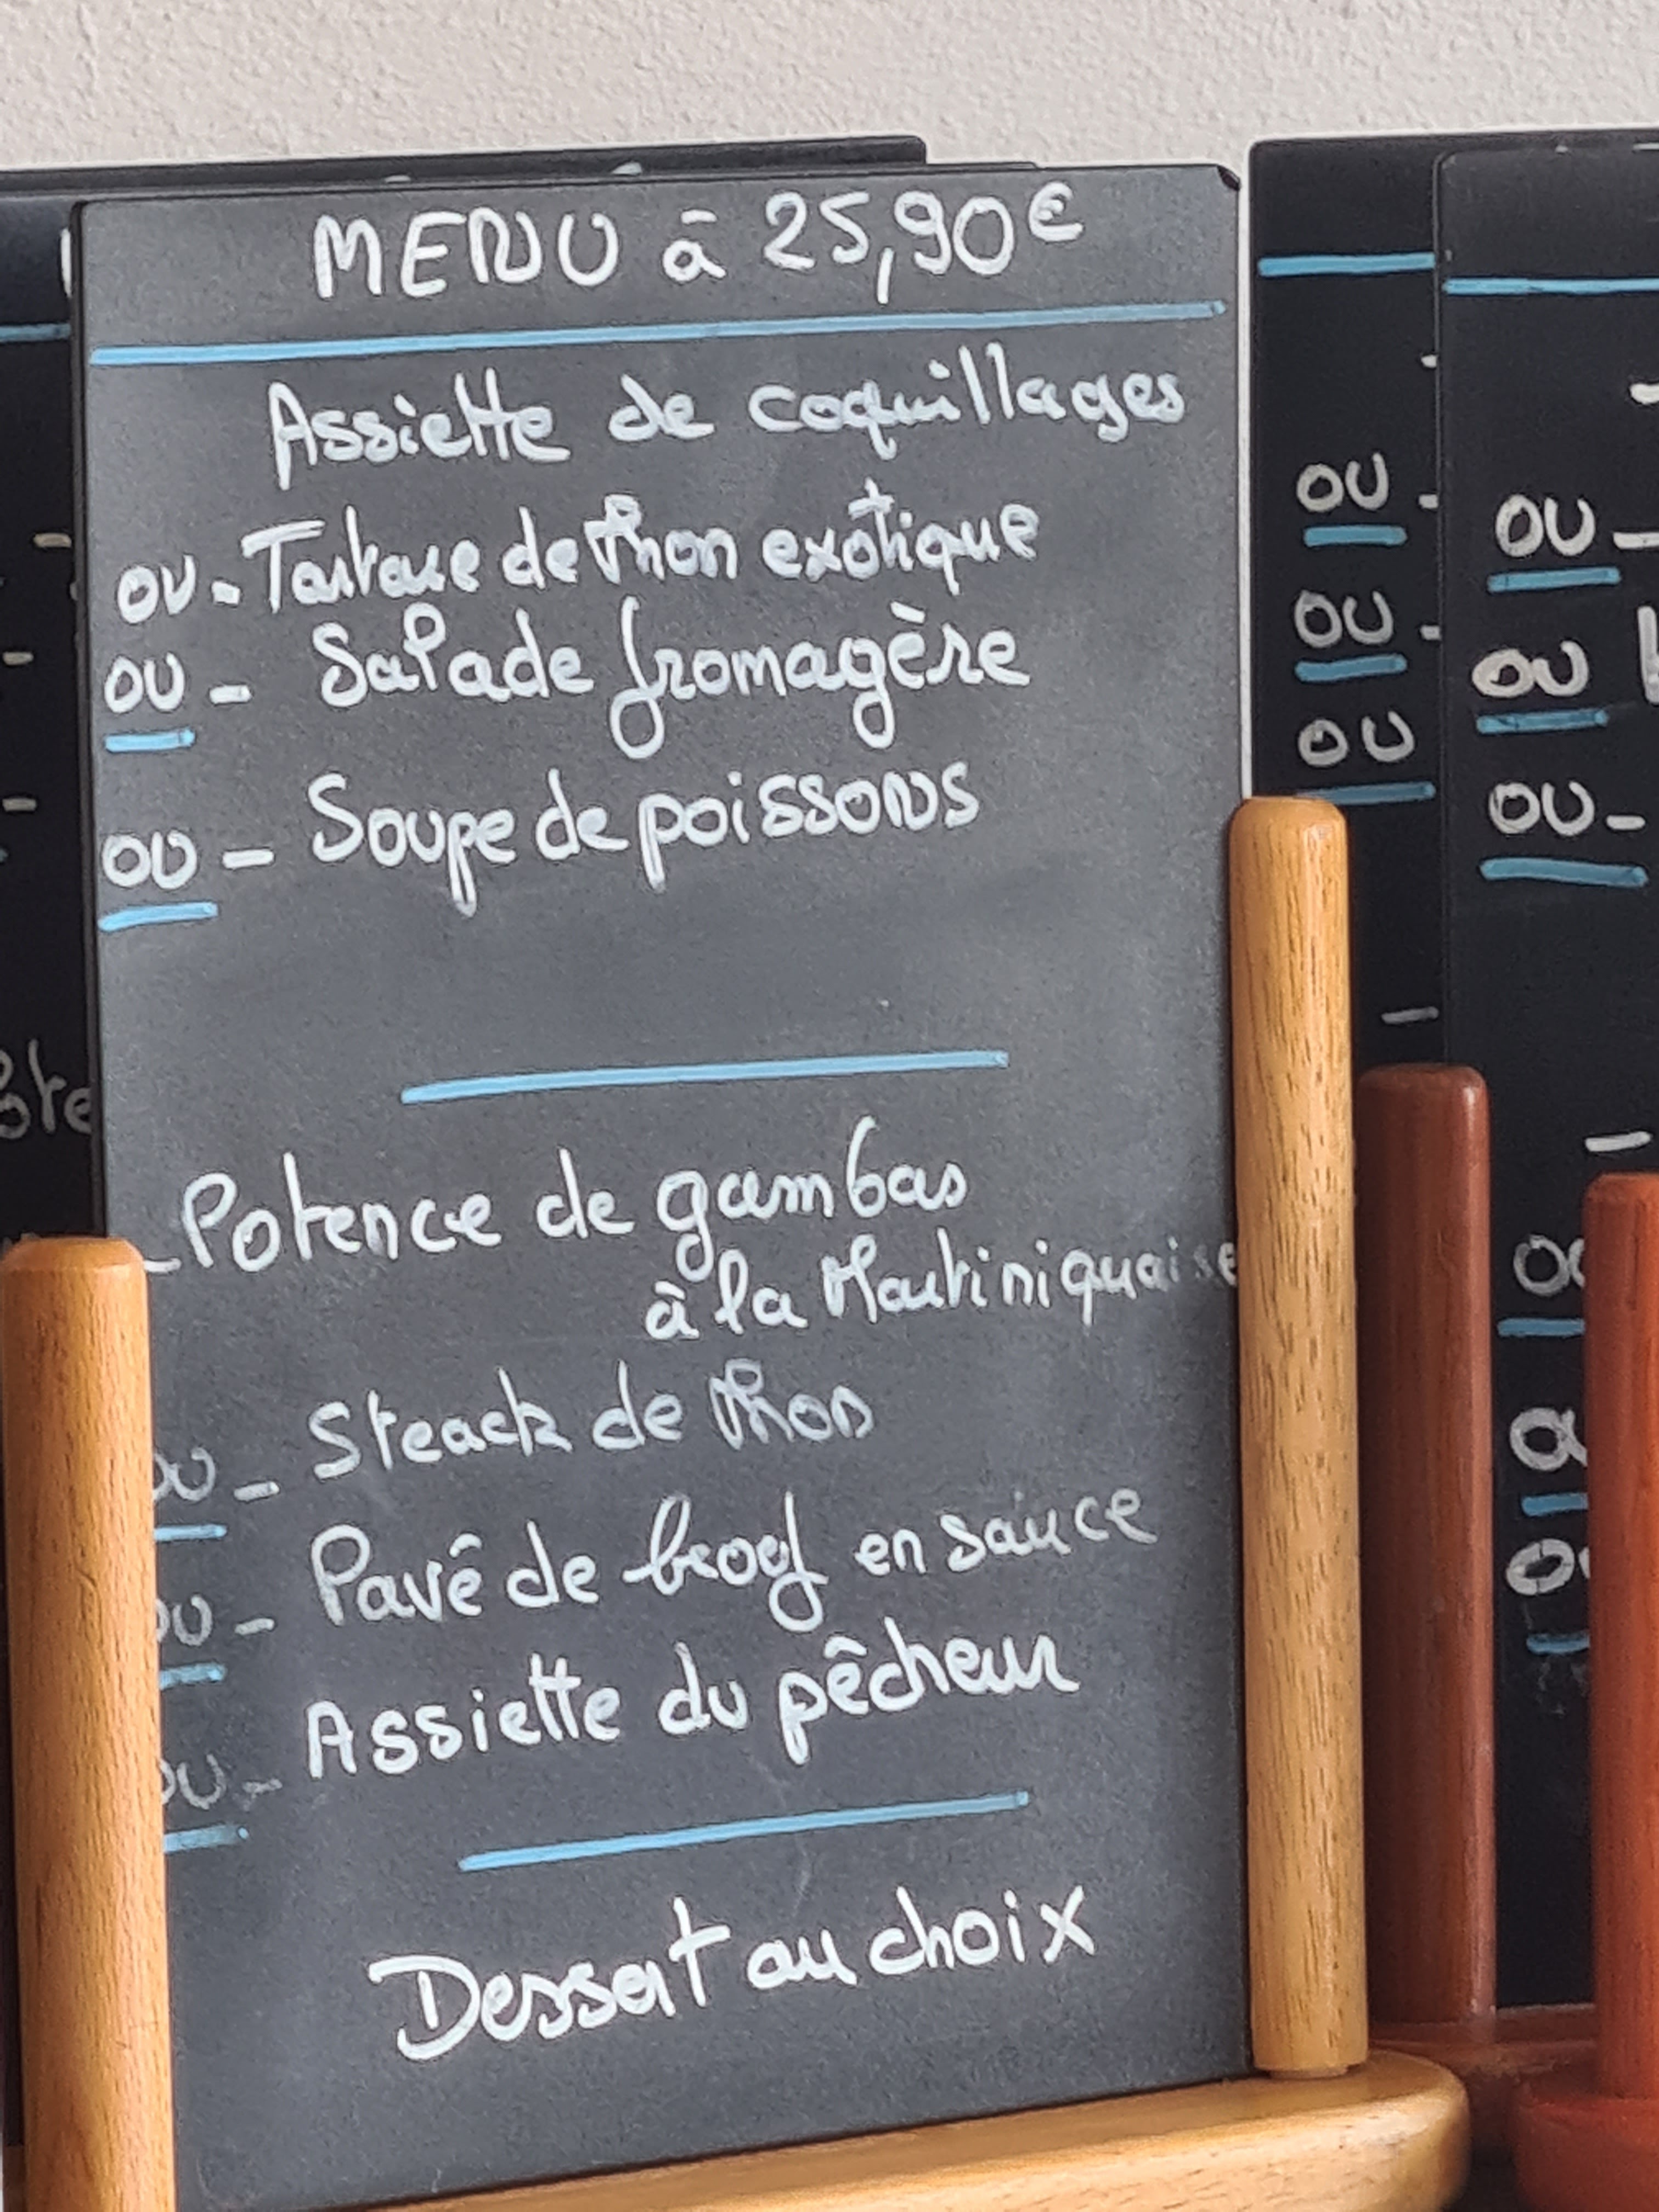 MENU à 25,90€
Assiette de coquillages
OU - Tartare de thon exotique
OU - Salade fromagère
OU - Soupe de poissons
- Potence de gambas
à la Martiniquaise
OU - Steack de thon
OU - Pavé de boeuf en sauce
OU - Assiette du pêcheur
Dessert au choix
OU -
OU -
OU
OU -
OU
OU -